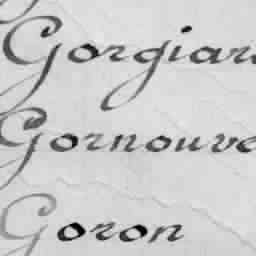 Gorgiar
Gornouve
Goron